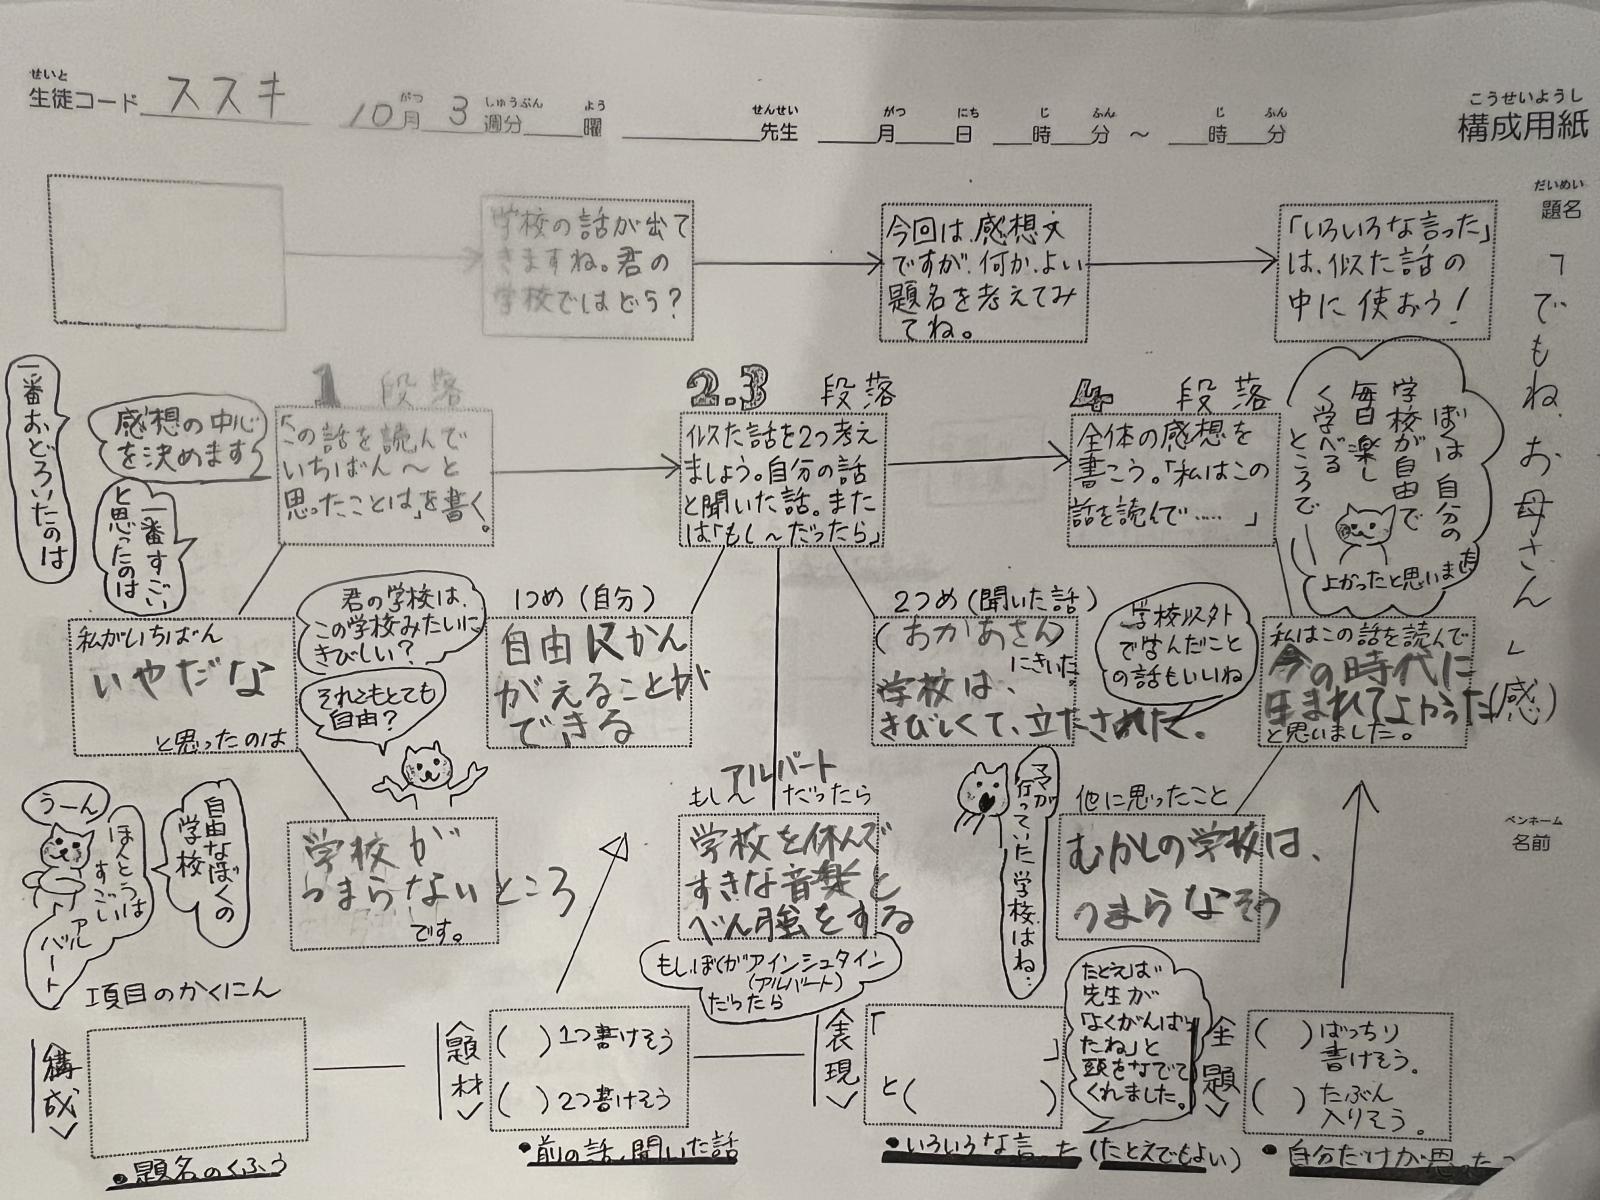 せいと
生徒コード ススキ
がつ しゅうぶん よう
10月 3 週分 曜
せんせい
先生
がつ にち じ ふん じ ふん
月 日 時 分 ～ 時 分
こうせいようし
構成用紙
だいめい
題名
「でもね、お母さん」(感)
ペンネーム
名前
学校の話が出て
きますね。君の
学校ではどう?
今回は、感想文
ですが、何か、よい
題名を考えてみ
てね。
「いろいろな言った」
は、似た話の
中に使おう!
一番おどろいたのは
感想の中心
を決めます
一番すごい
と思ったのは
1 段落
「この話を読んで
いちばん～と
思ったことは」を書く。
2.3 段落
似た話を2つ考え
ましょう。自分の話
と聞いた話。また
は「もし～だったら」
4 段落
全体の感想を
書こう。「私はこの
話を読んで……」
ぼくは自分の
学校が自由で
毎日楽し
く学べる
ところで
よかったと思いました
私がいちばん
いやだな
と思ったのは
君の学校は、
この学校みたいに
きびしい?
それともとても
自由?
1つめ(自分)
自由にかん
がえることが
できる
2つめ(聞いた話)
(おかあさん)
にきいた
学校は、
きびしくて、立たされた。
学校以外
で学んだこと
の話もいいね
私はこの話を読んで
今の時代に
生まれてよかった
と思いました。
うーん
ほんとうは
すごい
アル
バート
自由なぼくの
学校
学校が
つまらないところ
です。
アルバート
もし～だったら
学校を休んで
すきな音楽と
べん強をする
もしぼくがアインシュタイン
(アルバート)
だったら
ママが
行っていた学校はね…
他に思ったこと
むかしの学校は、
つまらなそう
項目のかくにん
〈構成〉
・題名のくふう
〈題材〉
( )1つ書けそう
( )2つ書けそう
・前の話、聞いた話
〈表現〉
「
」
と( )
・いろいろな言った(たとえでもよい)
たとえば
先生が
「よくがんばっ
たね」と
頭をなでて
くれました。
〈主題〉
( )ばっちり
書けそう。
( )たぶん
入りそう。
・自分だけが思った